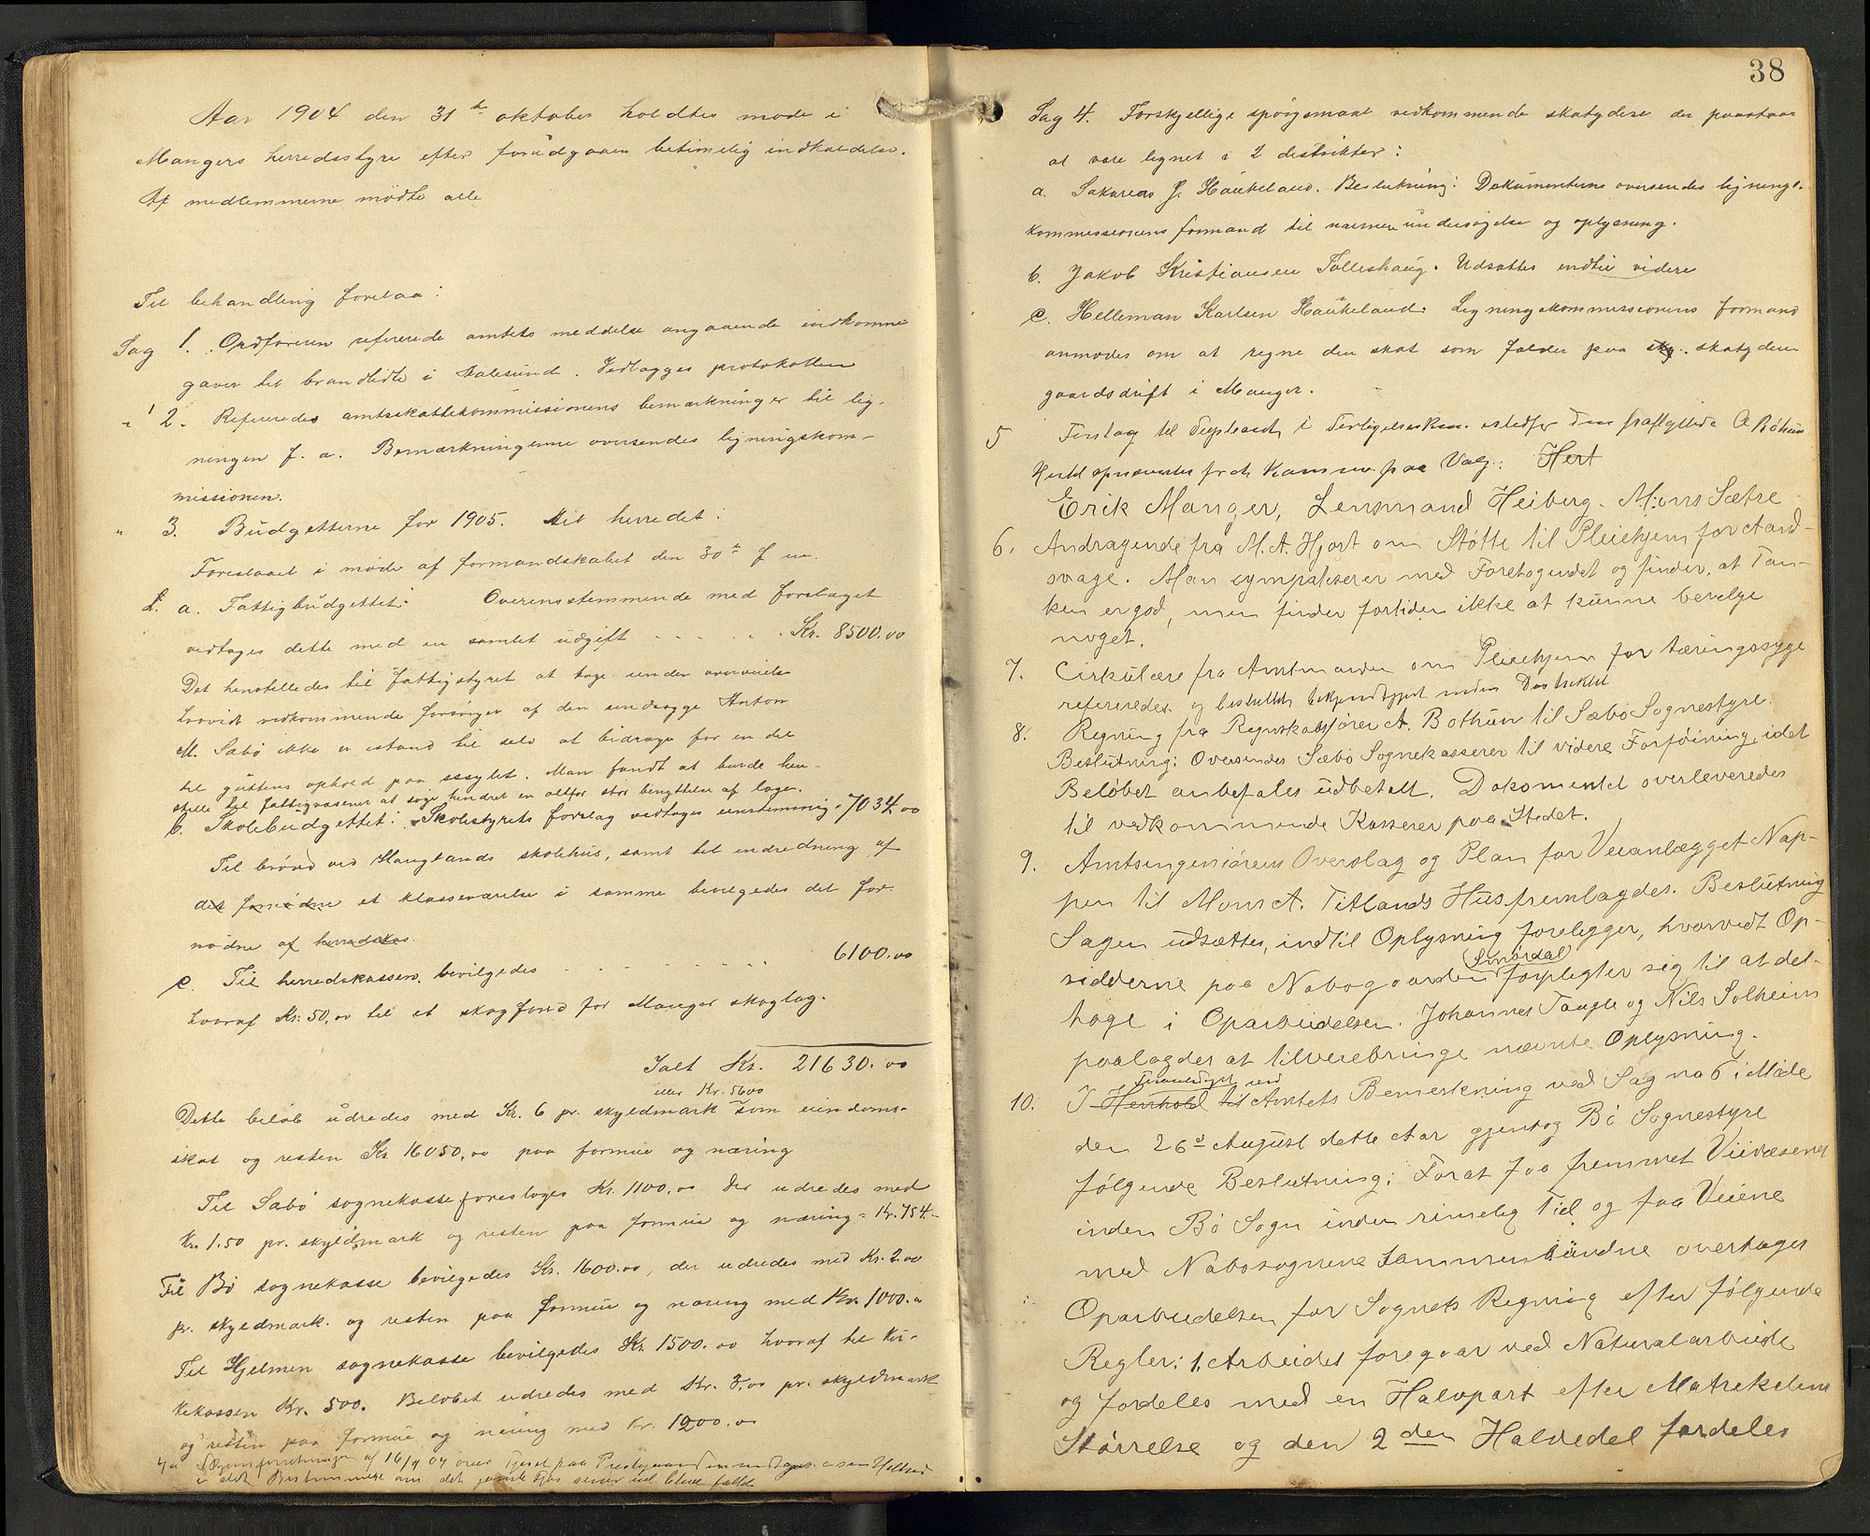 Aar 1904 den 31te oktober holdtes møde i
Mangers herredsstyre efter forudgaaen betimelig indkaldelse.
Af medlemmerne mødte alle
Til behandling forelaa:
Sag 1. Ordføreren refererede amtets meddelse angaaende indkomne
gaver til brandlidte i Aalesund. Vedlægges protokollen
" 2. Refereredes amtsskattekommissionens bemærkninger til lig-
ningen f. a. Bemærkningerne oversendes ligningskom-
missionen.
" 3. Budgetterne for 1905. Til herredet:
Foreslaaet i møde af formandskabet den 30te f m.
a. Fattigbudgettet: Overensstemmende med forslaget
vedtoges dette med en samlet udgift - - - - Kr. 8500.00
Det henstilledes til fattigstyret at tage under overveielse
hvorvidt vedkommende forsørger af den sindssyge Anton
M. Sæbø ikke er istand til selv at bidrage for en del
til guttens ophold paa asylet. Man fandt at burde hen-
stille til fattigvæsenet at søge hindret en altfor stor benyttelse af læge.
b. Skolebudgettet: Skolestyrets forslag vedtoges enstemmig - 7034.00
Til brønd ved Hauglands skolehus, samt til indredning af
et klasseværelse i samme bevilgedes det for-
nødne af herredsk
c. Til herredskassen bevilgedes - - - - - - 6100.00
hvoraf Kr. 50,00 til et skogfond for Manger skoglag.
Ialt Kr. 21630.00
eller Kr. 5600
Dette beløb udredes med Kr. 6 pr. skyldmark som eiendoms-
skat og resten Kr 16050,00 paa formue og næring
Til Sæbø sognekasse foresloges Kr. 1100,00 der udredes med
Kr. 1.50 pr. skyldmark og resten paa formue og næring = Kr. 754.-
Til Bø sognekasse bevilgedes Kr. 1600.00, der udredes med Kr. 2.00
pr. skyldmark. og resten paa formue og næring med Kr. 1000.00
Til Hjelmen sognekasse bevilgedes Kr. 1500.00 hvoraf til kir-
kekassen Kr. 500. Beløbet udredes med Kr. 3,00 pr. skyldmark
og resten paa formue og næring med Kr. 1200.00
af 16/9 04 over
38
Sag 4. Forskjellige spørgsmaal vedkommende skatydere der paastaar
at være lignet i 2 distrikter:
a. Sakarias J. Haukeland. Beslutning: Dokumenterne oversendes lignings-
kommissionens formand til nærmere undersøgelse og oplysning.
b. Jakob Kristiansen Tolleshaug. Udsattes indtil videre
c. Helleman Karlsen Haukeland: Ligningskommissionens formand
anmodes om at regne den skat som falder paa sky. skatyderen
gaardsdrift i Manger.
5 Forslag til Suppleant i Forligelseskom. istedfor den fraflyttede A Bøthun
Hertil opnævntes fra Kommunen paa Valg: Hert
Erik Manger, Lensmand Heiberg. Mons Sætre
6. Andragende fra M. A. Hjort om Støtte til Pleiehjem for Aand-
svage. Man sympatiserer med Foretagendet og finder, at Tan-
ken er god, men finder fortiden ikke at kunne bevilge
noget.
7. Cirkulære fra Amtmanden om Pleiehjem for tæringssyge
refereredes og besluttes bekjendtgjort inden Distriktet
8. Regning fra Regnskabsfører A. Bothun til Sæbø Sognestyre.
Beslutning: Oversendes Sæbø Sognekasserer til videre Forføining, idet
Beløbet anbefales udbetalt. Dokomentet overleveredes
til vedkommende Kasserer paa Stedet.
9. Amtsingeniørens Overslag og Plan for Veianlægget Nap-
pen til Mons A. Titlands Hus fremlagdes. Beslutning
Sagen udsættes, indtil Oplysning foreligger, hvorvidt Op-
Smørdal
sidderne paa Nabogaarden forpligter sig til at del-
tage i Oparbeidelsen. Johannes Taugle og Nils Solheim
paalagdes at tilveiebringe nævnte Oplysning.
10. I Henhold til Amtets Bemerkning ved Sag no 6 i Møde
den 26de August dette Aar gjentog Bø Sognestyre
følgende Beslutning: Forat faa fremmet Veivæsenet
inden Bø Sogn inden rimelig Tid og faa Veiene
med Nabosognene sammenbundne overtages
Oparbeidelsen for Sognets Regning efter følgende
Regler: 1. Arbeidet foregaar ved Naturalarbeide
og fordeles med en Halvpart efter Matrikelens
Størrelse og den 2den Halvdel fordeles